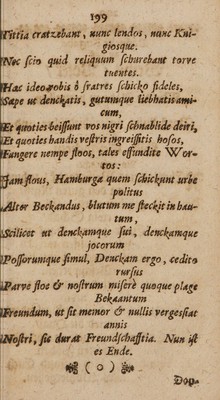 199
Tittia cratzabant, nunc lendos, nunc Kni-
giosque.
Nec scio quid reliquum schurebant torve
tuentes.
Hæc ideo vobis ô fratres schicko fideles,
Sæpe ut denckatis, gutumque liebhatis ami-
cum,
Et quoties beissunt vos nigri schnablide deiri,
Et quoties handis vestris ingreiffitis hosos,
Fangere nempe floos, tales effundite Wor-
tos:
Jam flous, Hamburgæ quem schickunt urbe
politus
Alter Beckandus, blutum me steckit in hau-
tum,
Scilicet ut denckamque sui, denckamque
jocorum
Possorumque simul, Denckam ergo, cedito
rursus
Parve floe & nostrum miserè quoque plage
Bekaantum
Freundum, ut sit memor & nullis vergessiat
annis
Nostri, sic durat Freundschafftia. Nun ist
es Ende.
(o)
Dop-